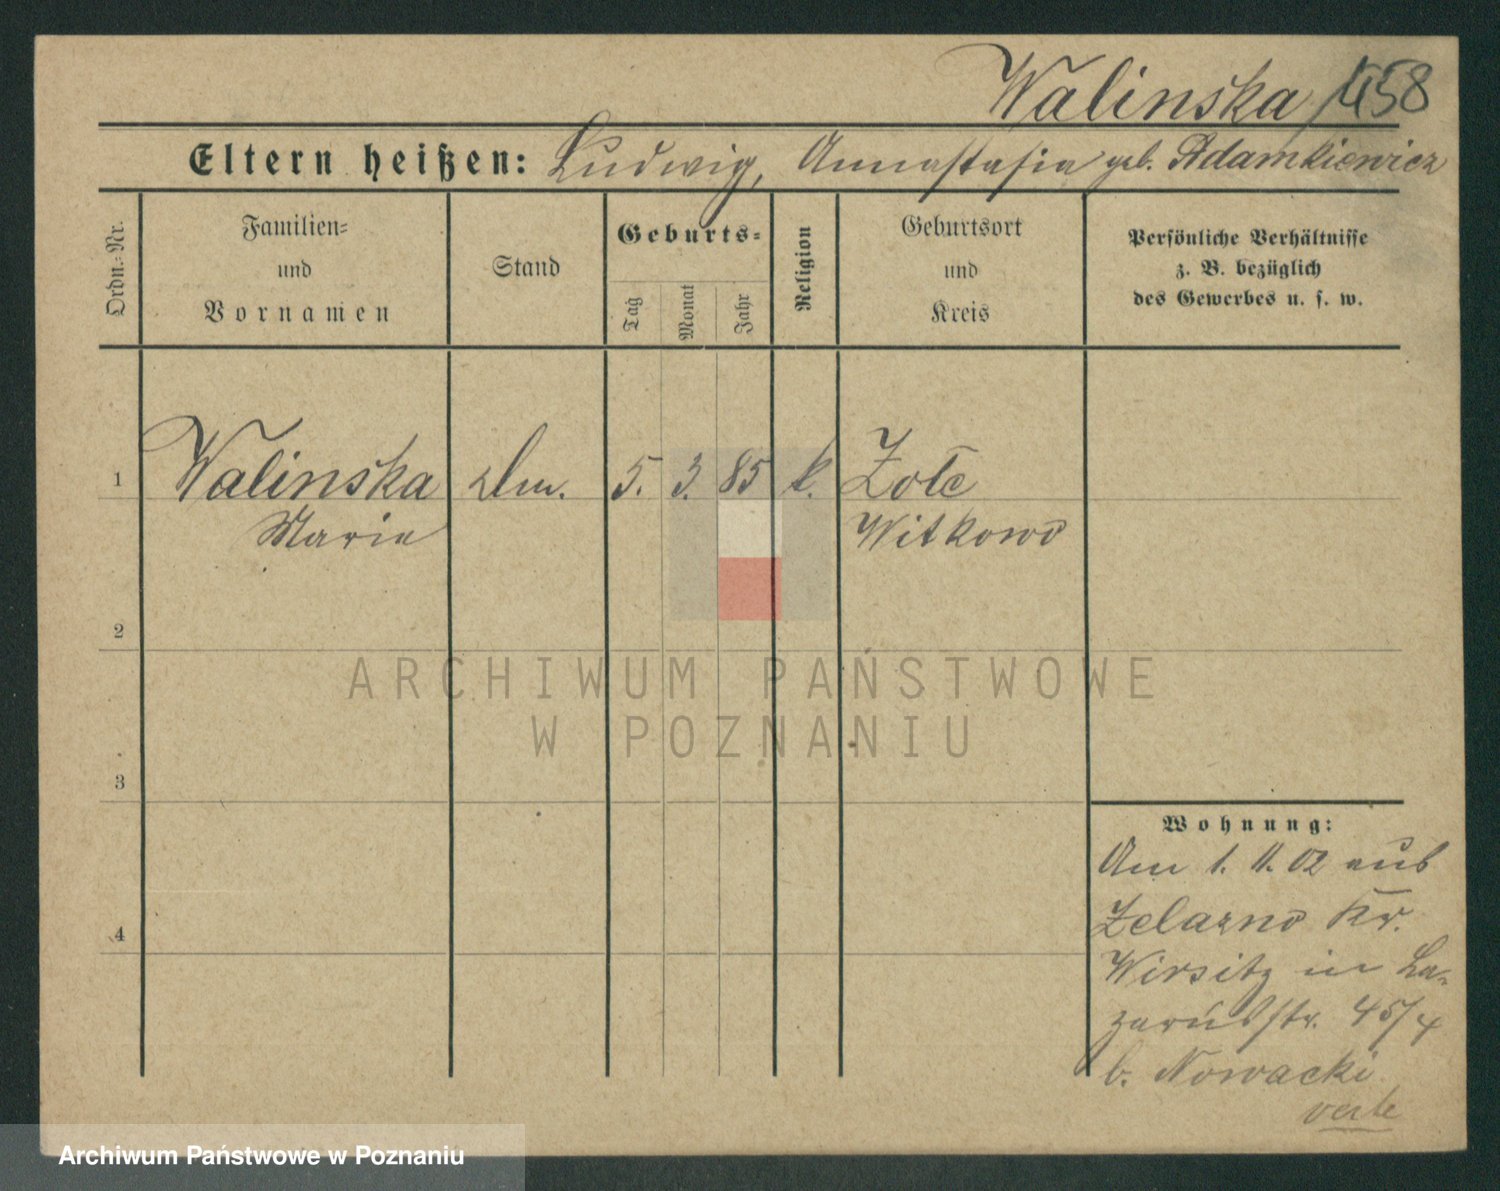 Walinska 1458
Eltern heißen: Ludwig, Annastasia geb. Adamkiewicz
Ordn.-Nr.
Familien-
und
Vornamen
Stand
Geburts-
Tag
Monat
Jahr
Religion
Geburtsort
und
Kreis
Persönliche Verhältnisse
z. B. bezüglich
des Gewerbes u. s. w.
1 Walinska 5. 3. 85 k.
Marie Witkowo
2
3
4
ARCHIWUM PAŃSTWOWE
W POZNANIU
Wohnung:
Am 1. 11. 02 aus
Zelazno Kr.
Wirsitz in La-
zarusstr. 45/4
b. Nowacki
verte
Archiwum Państwowe w Poznaniu